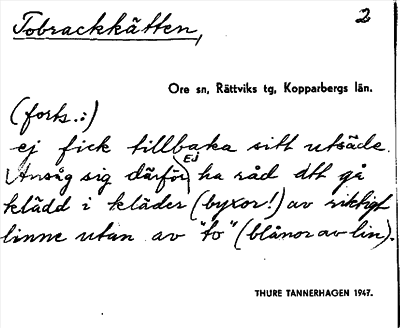 Tobrackkätten,
2
Ore sn, Rättviks tg, Kopparbergs län.
(forts.:)
ej fick tillbaka sitt utsäde.
Ansåg sig därför EJ ha råd att gå
klädd i kläder (byxor!) av riktigt
linne utan av "to" (blånor av lin).
THURE TANNERHAGEN 1947.